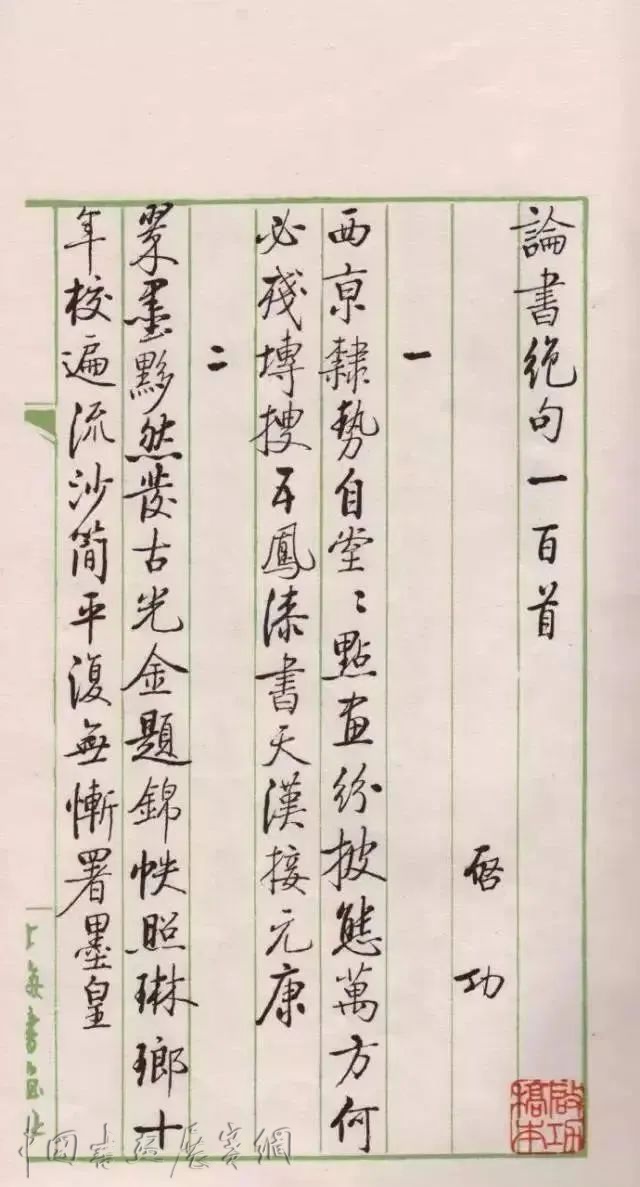 論書絶句一百首
启功
一
西京隸勢自堂〻點畫紛披態萬方何
必殘塼搜五鳳漆書天漢接元康
二
翠墨黟然發古光金題錦帙照琳瑯十
年校遍流沙簡平復無慚署墨皇
啟功
稿本
上海書畫社
中國書法展賽網